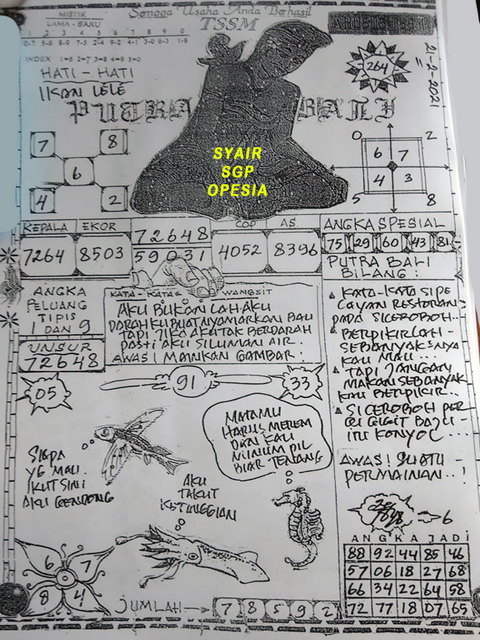 Semoga Usaha Anda Berhasil
TSSM
MISTIK
LAMA - BARU
1 2 3 4 5 6 7 8 9 0
INDEX
HATI - HATI
IKAN LELE
264
21-2-2022
PUTRA BALI
7 8
6
4 2
SYAIR
SGP
OPESIA
0 2
6 7
4 3
5 8
KEPALA EKOR
7264 8503
72648
59031
COP AS
4052 8396
ANGKA SPESIAL
75 29 60 43 81
PUTRA BALI
BILANG :
ANGKA
PELUANG
TIPIS
1 DAN 9
UNSUR
72648
KATA - KATA & WANGSIT
AKU BUKAN LAH AKU
DARAHKU BUAT NYAMARKAN BAU
TAPI JIKA AKU TAK BERDARAH
PASTI AKU SILUMAN AIR.
AWAS! MAINKAN GAMBAR
KATA-KATA SI PE
LAYAN RESTORAN
PADA SI CEROBOH
BERPIKIRLAH
SEBANYAK2NYA
KAU MAU...
TAPI JANGAN
MAKAN SEBANYAK
KAU BERPIKIR..
SI CEROBOH PER
GI GIGIT BAJU
ITU KONYOL...
AWAS! SUATU
PERMAINAN..!
05
91
33
MATAMU
HARUS MEREM
DAN KAU
MINUM PIL
BIAR TENANG
SIAPA
YG MAU
IKUT SINI
AKU GENDONG
AKU
TAKUT
KETINGGIAN
6
6 7
8 4
JUMLAH
7 8 5 9 2
ANGKA JADI
88 92 44 85 46
57 06 18 27 68
66 34 22 64 58
72 77 18 07 65